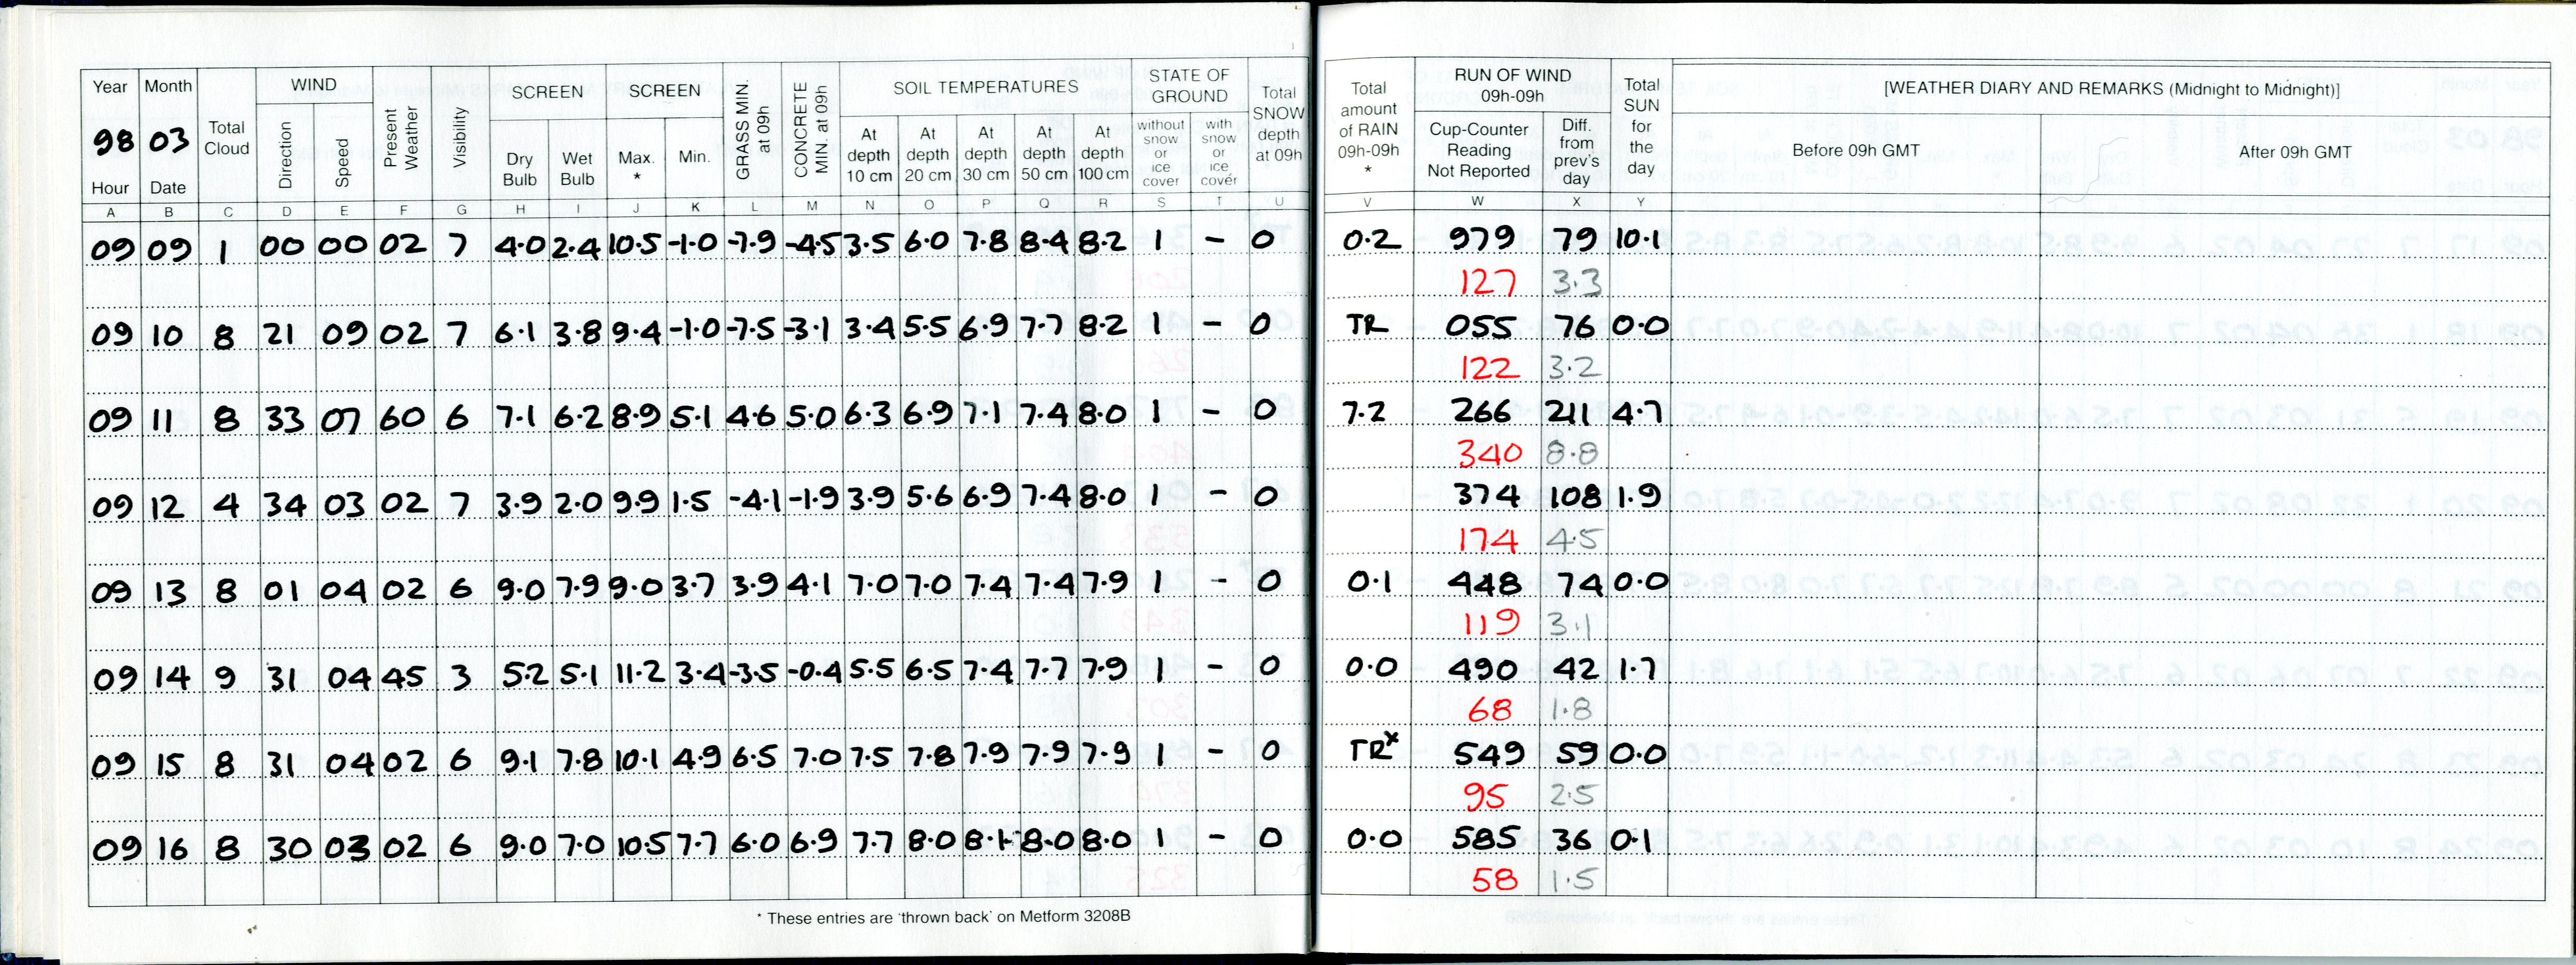 Year Month Total Cloud WIND Present Weather Visibility SCREEN SCREEN GRASS MIN. at 09h CONCRETE MIN. at 09h SOIL TEMPERATURES STATE OF GROUND Total SNOW depth at 09h Total amount of RAIN 09h-09h * RUN OF WIND 09h-09h Total SUN for the day [WEATHER DIARY AND REMARKS (Midnight to Midnight)]
98 03 Direction Speed Dry Bulb Wet Bulb Max. * Min. At depth 10 cm At depth 20 cm At depth 30 cm At depth 50 cm At depth 100 cm without snow or ice cover with snow or ice cover Cup-Counter Reading Not Reported Diff. from prev's day Before 09h GMT After 09h GMT
Hour Date
A B C D E F G H I J K L M N O P Q R S T U V W X Y
09 09 1 00 00 02 7 4.0 2.4 10.5 -1.0 -7.9 -4.5 3.5 6.0 7.8 8.4 8.2 1 - 0 0.2 979 79 10.1
127 3.3
09 10 8 21 09 02 7 6.1 3.8 9.4 -1.0 -7.5 -3.1 3.4 5.5 6.9 7.7 8.2 1 - 0 TR 055 76 0.0
122 3.2
09 11 8 33 07 60 6 7.1 6.2 8.9 5.1 4.6 5.0 6.3 6.9 7.1 7.4 8.0 1 - 0 7.2 266 211 4.7
340 8.8
09 12 4 34 03 02 7 3.9 2.0 9.9 1.5 -4.1 -1.9 3.9 5.6 6.9 7.4 8.0 1 - 0 374 108 1.9
174 4.5
09 13 8 01 04 02 6 9.0 7.9 9.0 3.7 3.9 4.1 7.0 7.0 7.4 7.4 7.9 1 - 0 0.1 448 74 0.0
119 3.1
09 14 9 31 04 45 3 5.2 5.1 11.2 3.4 -3.5 -0.4 5.5 6.5 7.4 7.7 7.9 1 - 0 0.0 490 42 1.7
68 1.8
09 15 8 31 04 02 6 9.1 7.8 10.1 4.9 6.5 7.0 7.5 7.8 7.9 7.9 7.9 1 - 0 TRx 549 59 0.0
95 2.5
09 16 8 30 03 02 6 9.0 7.0 10.5 7.7 6.0 6.9 7.7 8.0 8.1 8.0 8.0 1 - 0 0.0 585 36 0.1
58 1.5
* These entries are 'thrown back' on Metform 3208B